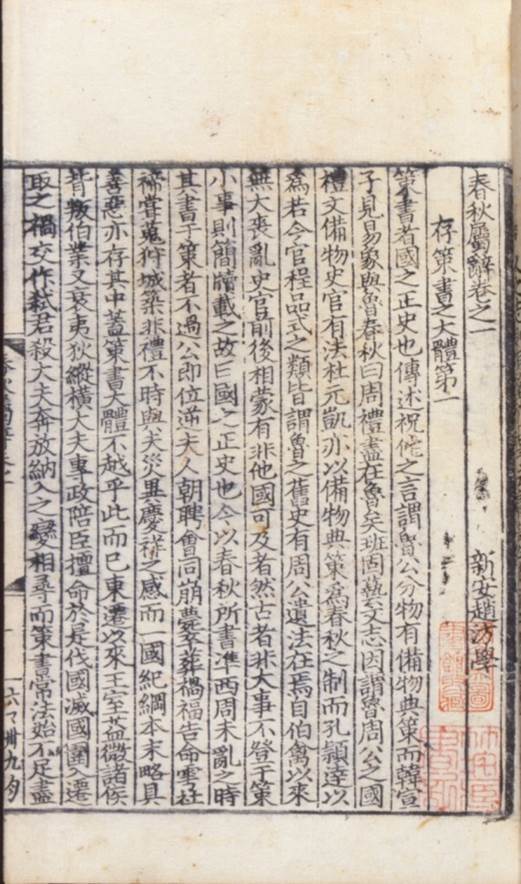 春秋屬辭卷之一
新安趙汸學
存策書之大體第一
策書者國之正史也傳述祝佗之言謂魯公分物有備物典策而韓宣
子見易象與魯春秋曰周禮盡在魯矣班固藝文志因謂魯周公之國
禮文備物史官有法杜元凱亦以備物典策爲春秋之制而孔頴達以
爲若今官程品式之類皆謂魯之舊史有周公遺法在焉自伯禽以來
無大喪亂史官前後相蒙有非他國可及者然古者非大事不登于策
小事則簡牘載之故曰國之正史也今以春秋所書準西周未亂之時
其書于策者不過公即位逆夫人朝聘會同崩薨卒葬禍福告命雩社
禘嘗蒐狩城築非禮不時與夫災異慶祥之感而一國紀綱本末略具
善惡亦存其中蓋策書大體不越乎此而已東遷以來王室益微諸侯
皆叛伯業又衰夷狄縱橫大夫專政陪臣擅命於是伐國滅國圍入遷
取之禍交作弑君殺大夫奔放納入之變相尋而策書常法始不足盡